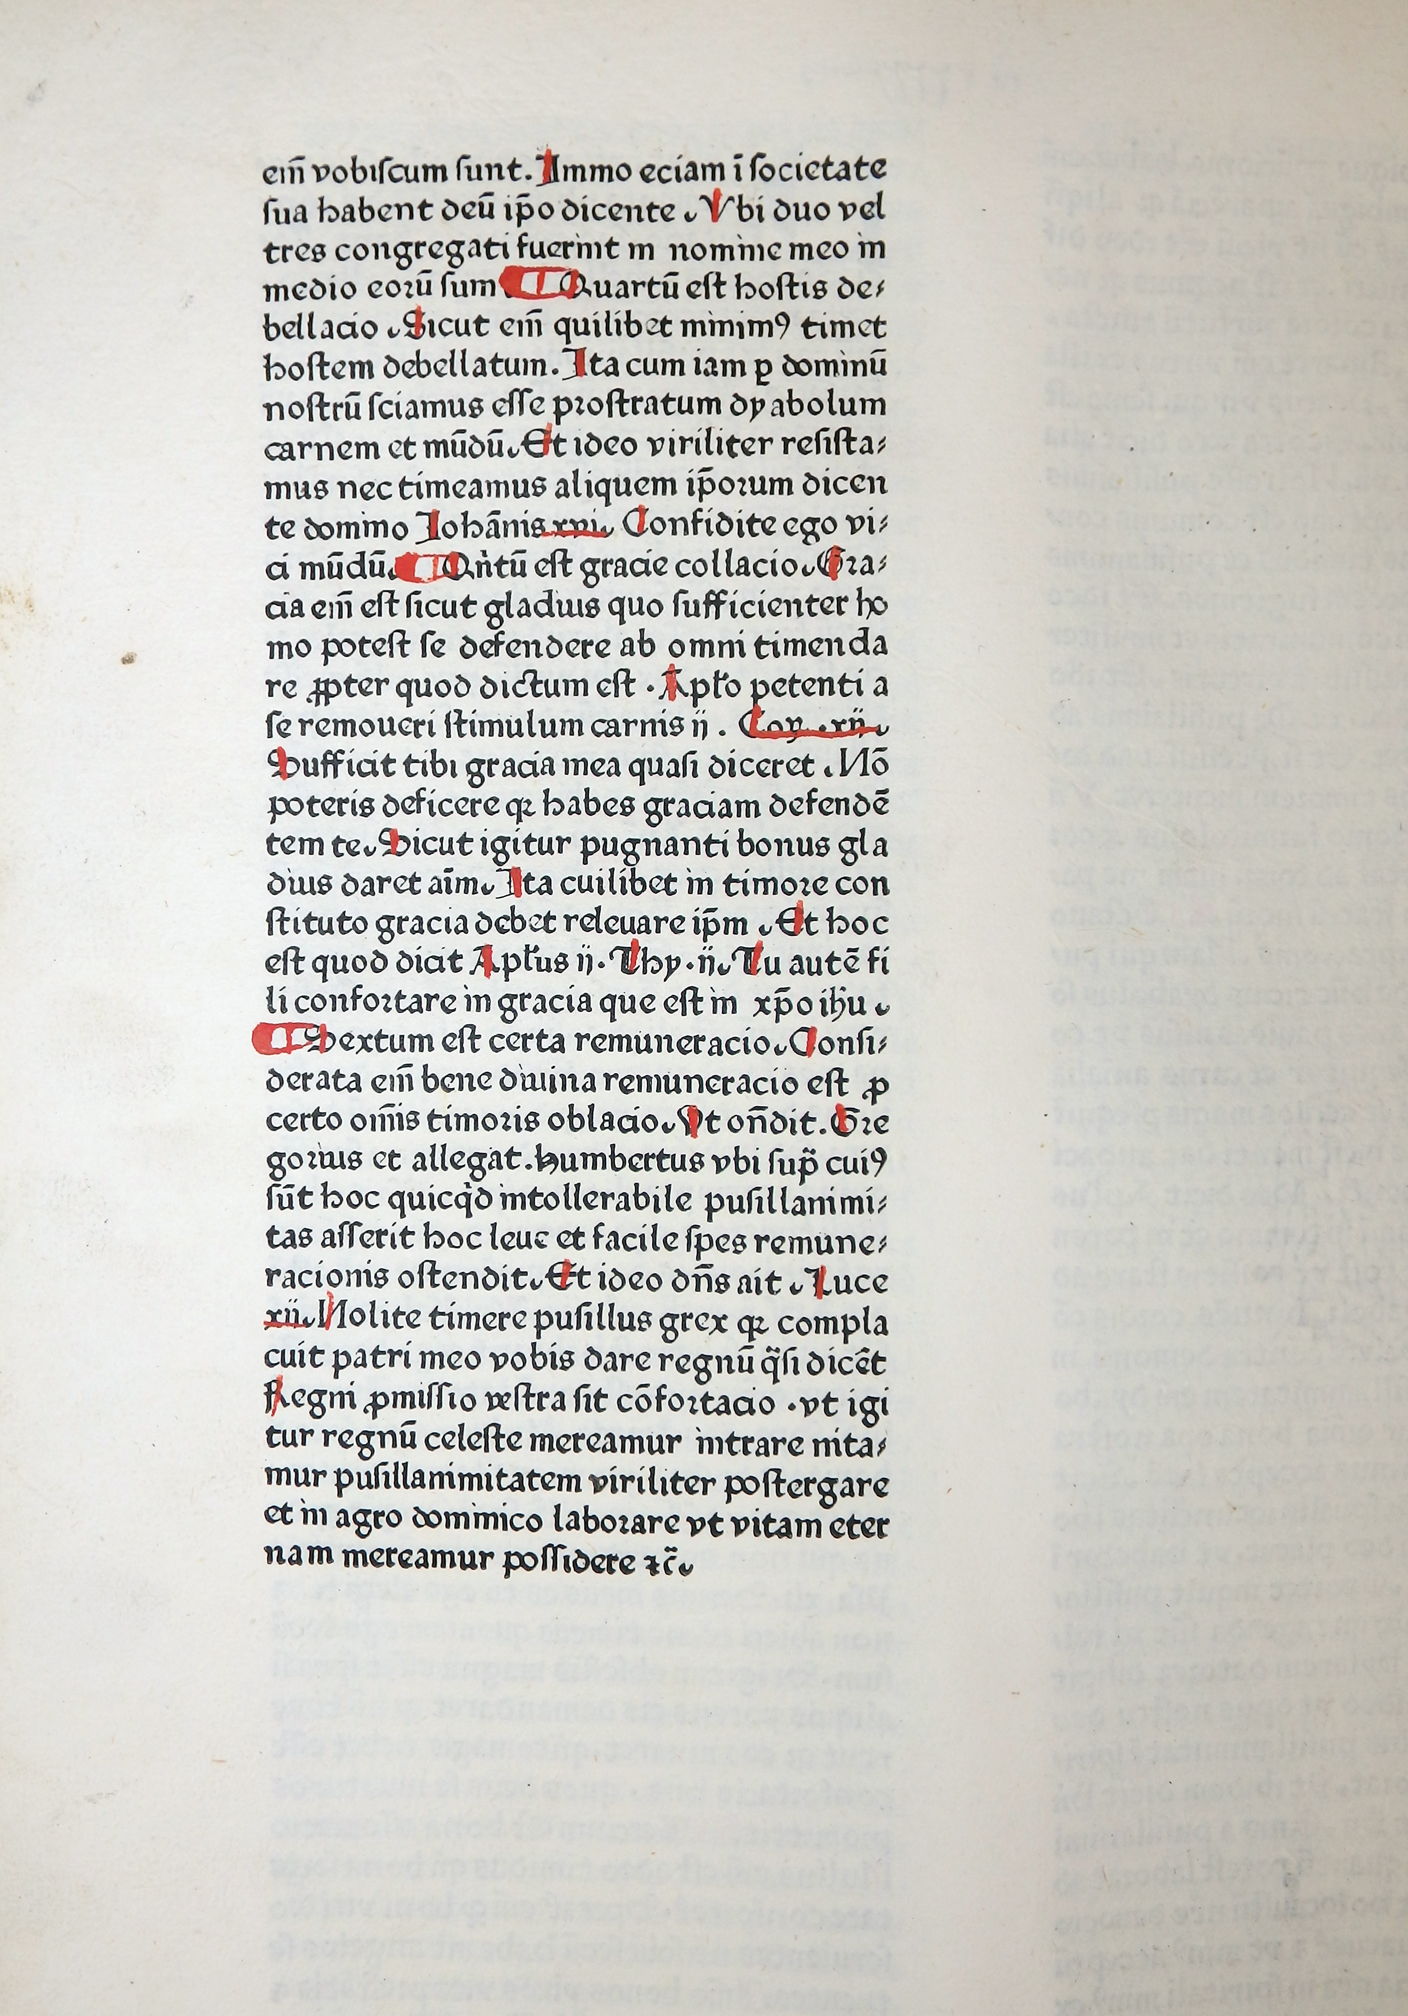 em̄ vobiſcum ſunt. Immo eciam ī ſocietate
ſua habent deū ip̄o dicente . Vbi duo vel
tres congregati fuerint in nomine meo in
medio eoꝝū ſum ¶ Quartū eſt hoſtis de⸗
bellacio . Sicut em̄ quilibet minimꝰ timet
hoſtem debellatum. Ita cum iam ꝑ dominū
noſtrū ſciamus eſſe pꝛoſtratum dyabolum
carnem et mūdū. Et ideo viriliter reſiſta⸗
mus nec timeamus aliquem ip̄oꝛum dicen
te domino Iohānis xvi. Confidite ego vi⸗
ci mūdū. ¶ Qn̍tū eſt gracie collacio. Gꝛa⸗
cia em̄ eſt ſicut gladius quo ſufficienter ho
mo poteſt ſe defendere ab omni timenda
re ꝓpter quod dictum eſt . Apl̄o petenti a
ſe remoueri ſtimulum carnis ij . Coꝝ .xij.
Sufficit tibi gracia mea quaſi diceret . Nō
poteris deficere qꝛ habes graciam defendē
tem te. Sicut igitur pugnanti bonus gla
dius daret aīm. Ita cuilibet in timoꝛe con
ſtituto gracia debet releuare ip̄m . Et hoc
eſt quod dicit Apl̄us ij. Thy .ij. Tu autē fi
li confoꝛtare in gracia que eſt in xp̄o ih̄u .
¶ Sextum eſt certa remuneracio. Conſi⸗
derata em̄ bene diuina remuneracio eſt ꝓ
certo om̄is timoꝛis oblacio. Vt on̄dit. Gꝛe
goꝛius et allegat. humbertus vbi ſup̄ cuiꝰ
ſūt hoc quicq̍d intollerabile puſillanimi⸗
tas aſſerit hoc leue et facile ſpes remune⸗
racionis oſtendit. Et ideo dn̄s ait . Luce
xij. Nolite timere puſillus grex qꝛ compla
cuit patri meo vobis dare regnū q̄ſi dicēt
Regni ꝓmiſſio veſtra ſit cōfoꝛtacio . vt igi
tur regnū celeſte mereamur intrare nita⸗
mur puſillanimitatem viriliter poſtergare
et in agro dominico laboꝛare vt vitam eter
nam mereamur poſſidere ⁊c̄.